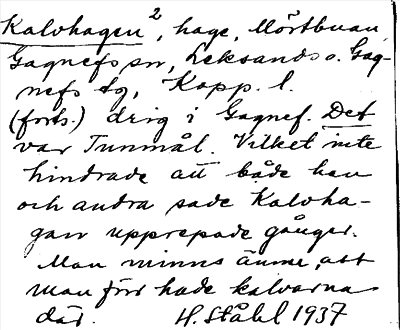 Kalvhagen², hage, Mörtbuan,
Gagnefs sn, Leksands o. Gag-
nefs tg, Kopp. l.
(forts.) drig i Gagnef. Det
var Tunmål. Vilket inte
hindrade att både han
och andra sade Kalvha-
gan upprepade gånger.
Man minns ännu, att
man förr hade kalvarna
där. H. Ståhl 1937